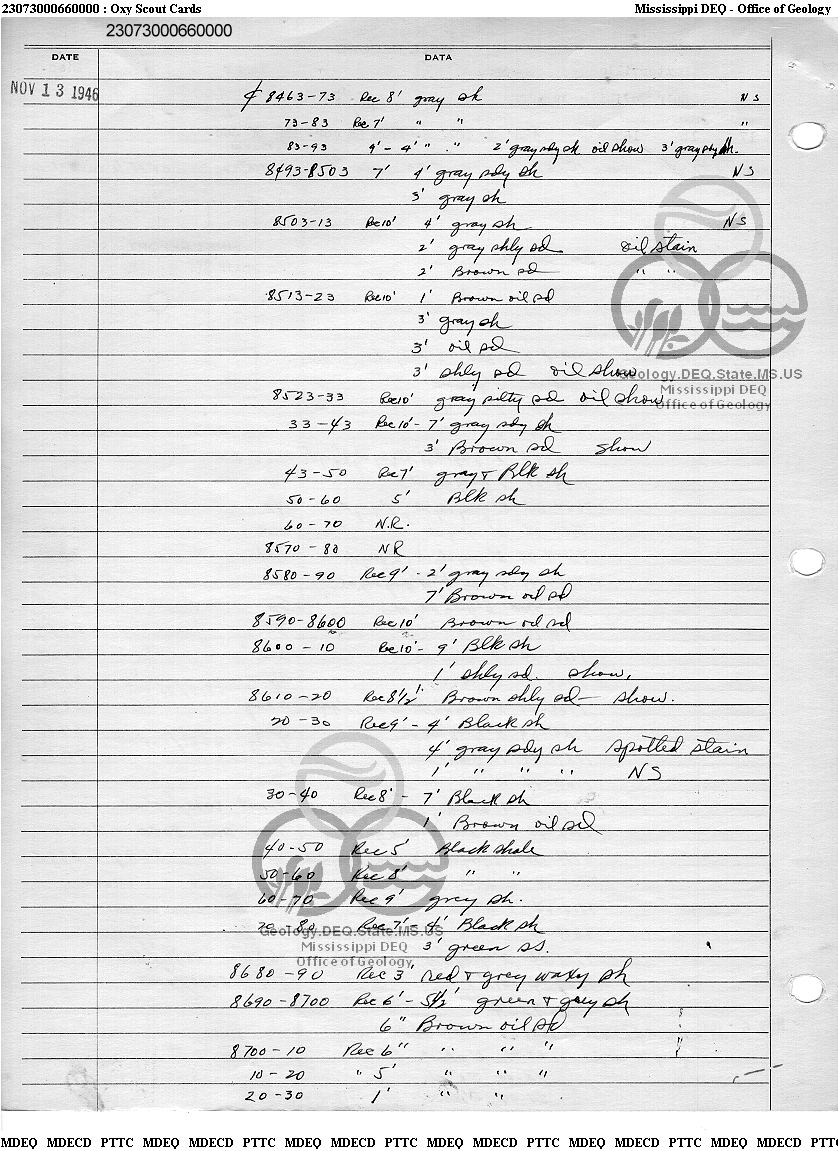 23073000660000 : Oxy Scout Cards Mississippi DEQ - Office of Geology
23073000660000
DATE DATA
NOV 13 1946
8463-73 Rec 8' gray sh NS
73-83 Rec 7' " " "
83-93 9' - 4' " " 2' gray sdy sh oil show 3' gray sdy sh.
8493-8503 7' 4' gray sdy sh NS
3' gray sh
8503-13 Rec 10' 4' gray sh NS
2' gray shly sd oil stain
2' Brown sd " "
8513-23 Rec 10' 1' Brown oil sd
3' gray sh
3' oil sd
3' shly sd oil show
Geology.DEQ.State.MS.US
Mississippi DEQ
Office of Geology
8523-33 Rec 10' gray silty sd oil show
33-43 Rec 10' - 7' gray sdy sh
3' Brown sd show
43-50 Rec 7' gray + Blk sh
50-60 5' Blk sh
60-70 N.R.
8570-80 NR
8580-90 Rec 9' - 2' gray sdy sh
7' Brown oil sd
8590-8600 Rec 10' Brown oil sd
8600-10 Rec 10' - 9' Blk sh
1' shly sd. show.
8610-20 Rec 8 1/2' Brown shly sd - show.
20-30 Rec 9' - 4' Black sh
4' gray sdy sh spotted stain
1' " " " NS
30-40 Rec 8' - 7' Black sh
1' Brown oil sd
40-50 Rec 5' Black shale
50-60 Rec 8' " "
60-70 Rec 9' grey sh.
70-80 Rec 7' - 4' Black sh
3' green ss.
Geology.DEQ.State.MS.US
Mississippi DEQ
Office of Geology
8680-90 Rec 3' red + grey waxy sh
8690-8700 Rec 6' - 5 1/2' green + grey sh
6" Brown oil sd
8700-10 Rec 6" " " "
10-20 " 5' " " "
20-30 1' " "
MDEQ MDECD PTTC MDEQ MDECD PTTC MDEQ MDECD PTTC MDEQ MDECD PTTC MDEQ MDECD PTTC MDEQ MDECD PTT